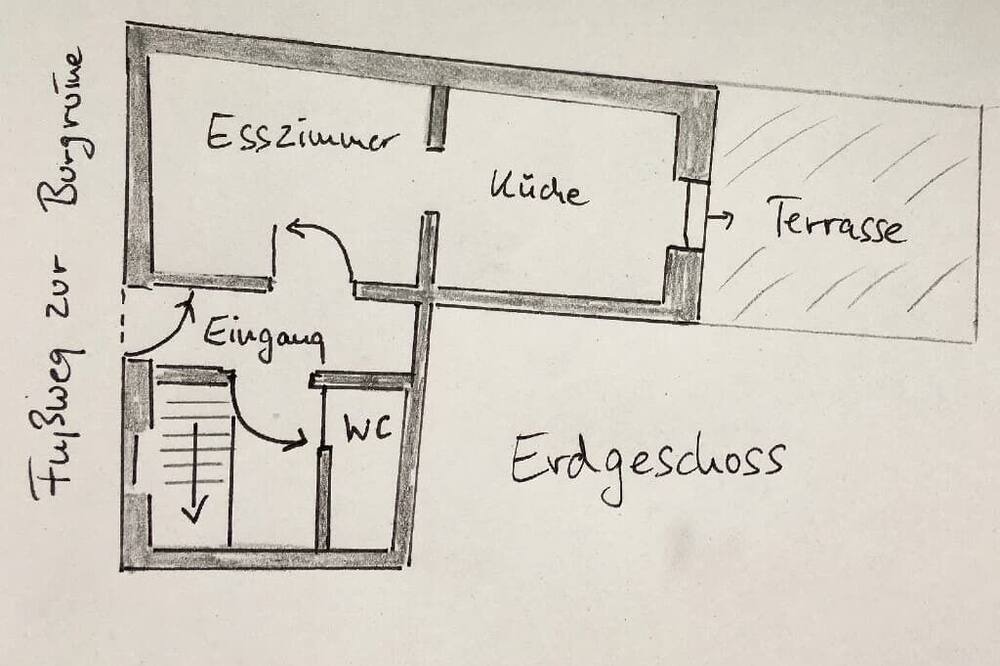 Fußweg zur Burgruine
Esszimmer
Küche
Terrasse
Eingang
WC
Erdgeschoss